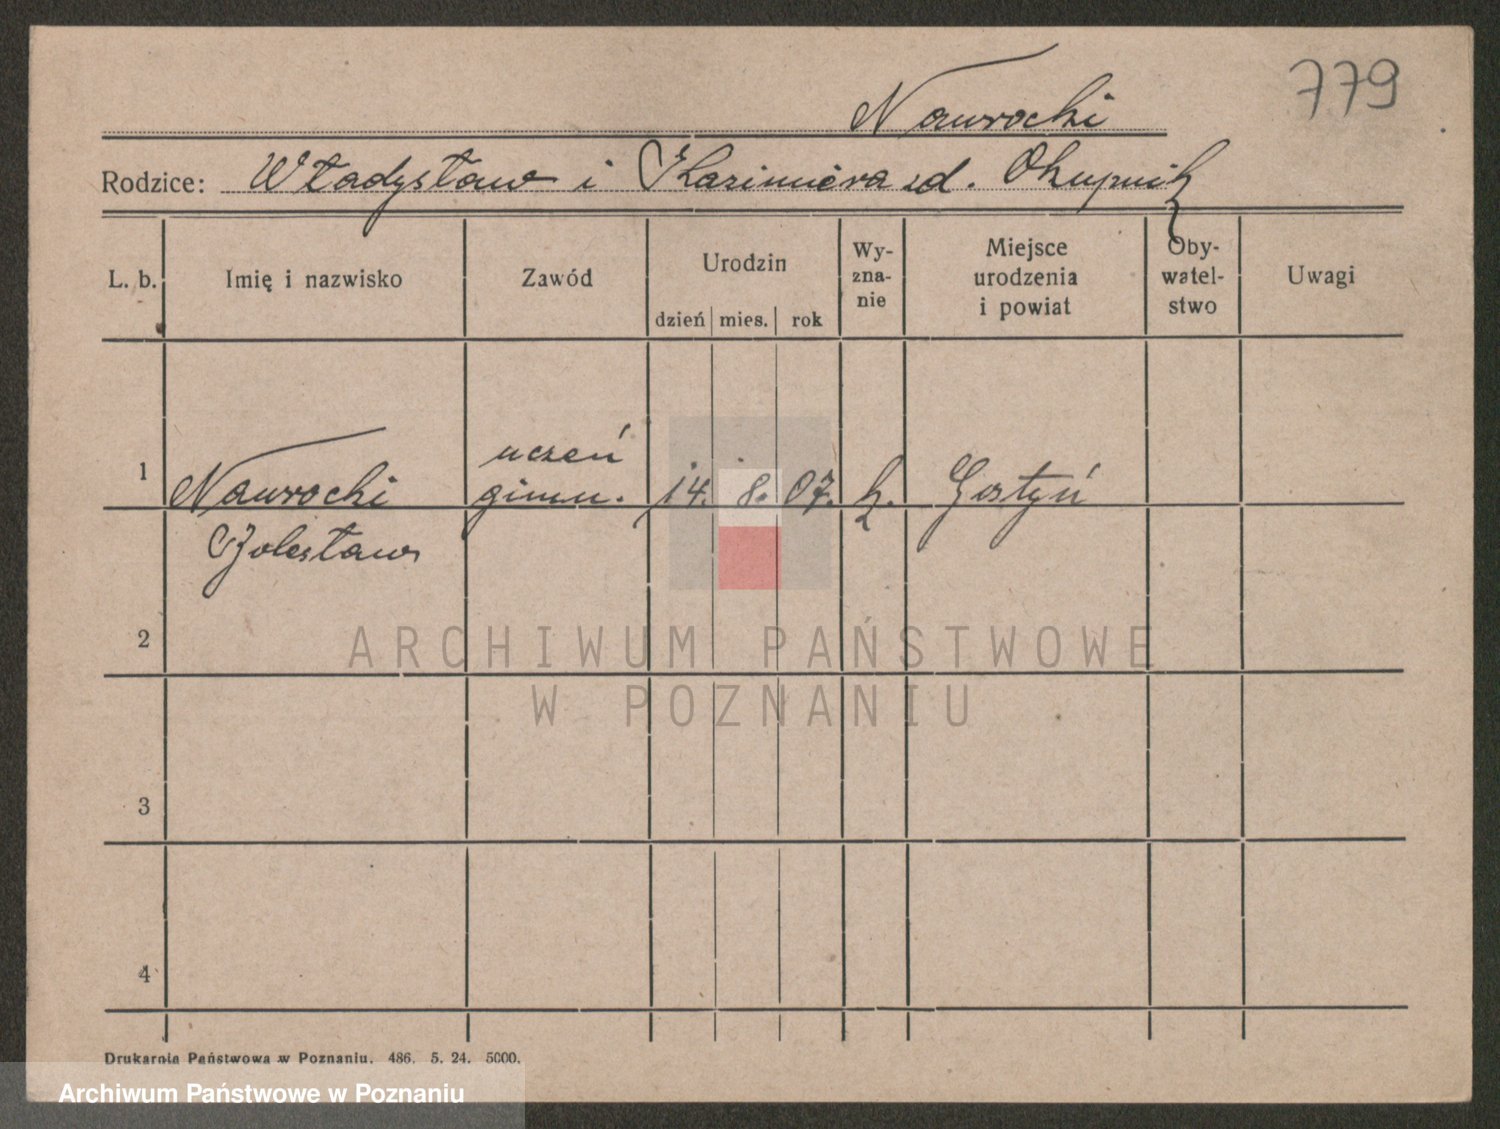 779
Nawrocki
Rodzice: Władysław i Kazimiera zd. Okupnik
L. b. Imię i nazwisko Zawód Urodzin Wy-zna-nie Miejsce urodzenia i powiat Oby-watel-stwo Uwagi
dzień mies. rok
uczeń
1 Nawrocki gimn. 14. 8. 07. k. Gostyń
Bolesław
2
ARCHIWUM PAŃSTWOWE
W POZNANIU
3
4
Drukarnia Państwowa w Poznaniu. 486. 5. 24. 5000.
Archiwum Państwowe w Poznaniu